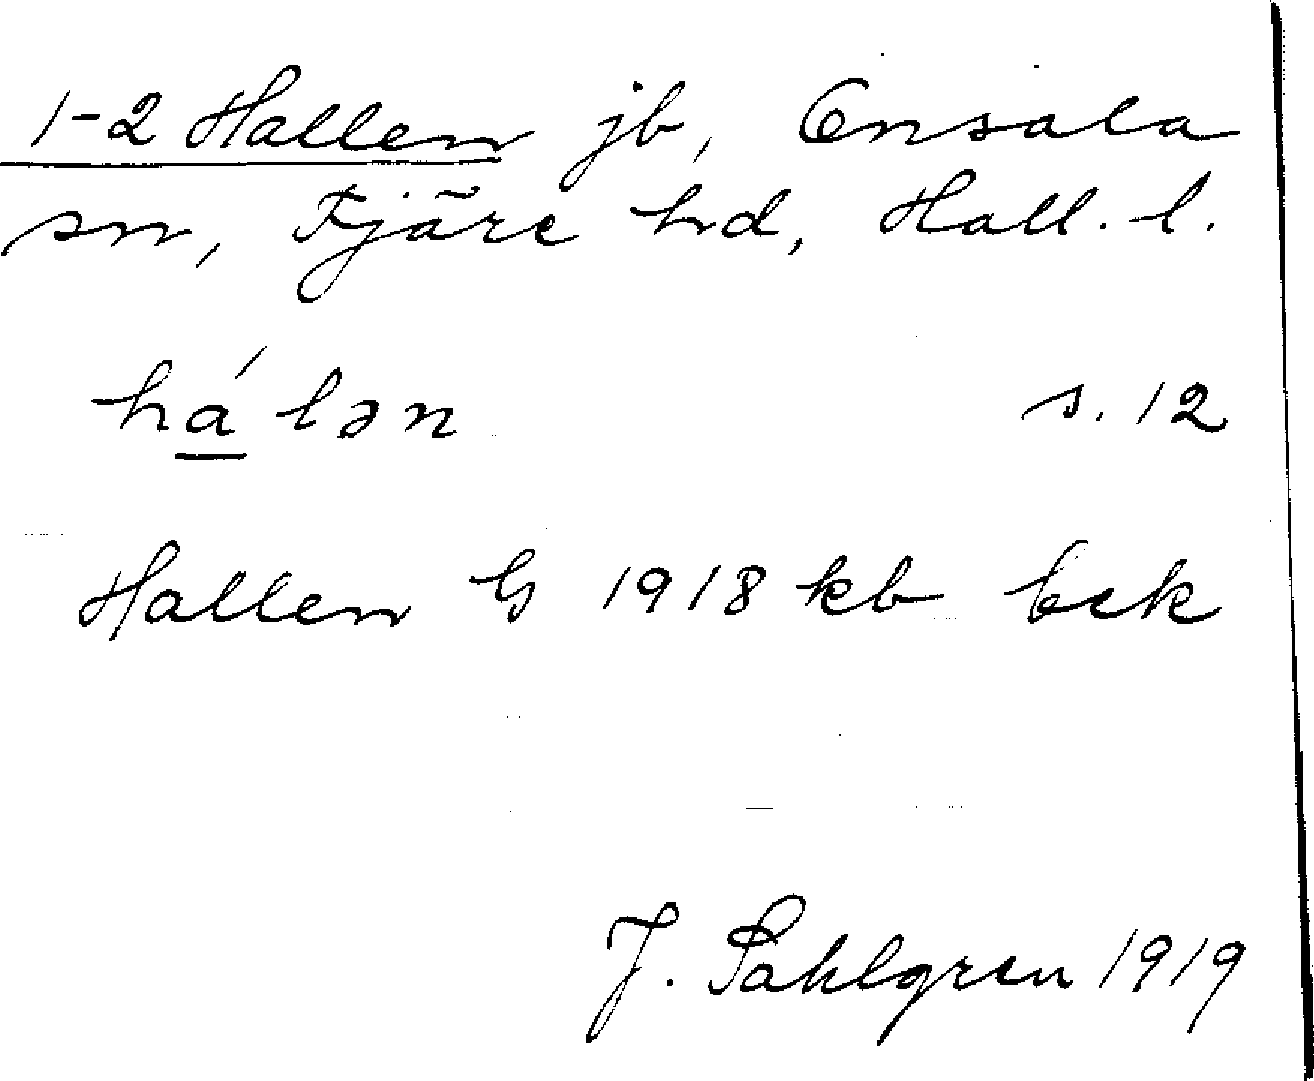 1-2 Hallen jb, Onsala
sn, Fjäre hd, Hall. l.
há lən s. 12
Hallen G 1918 kb Eek
J. Sahlgren 1919